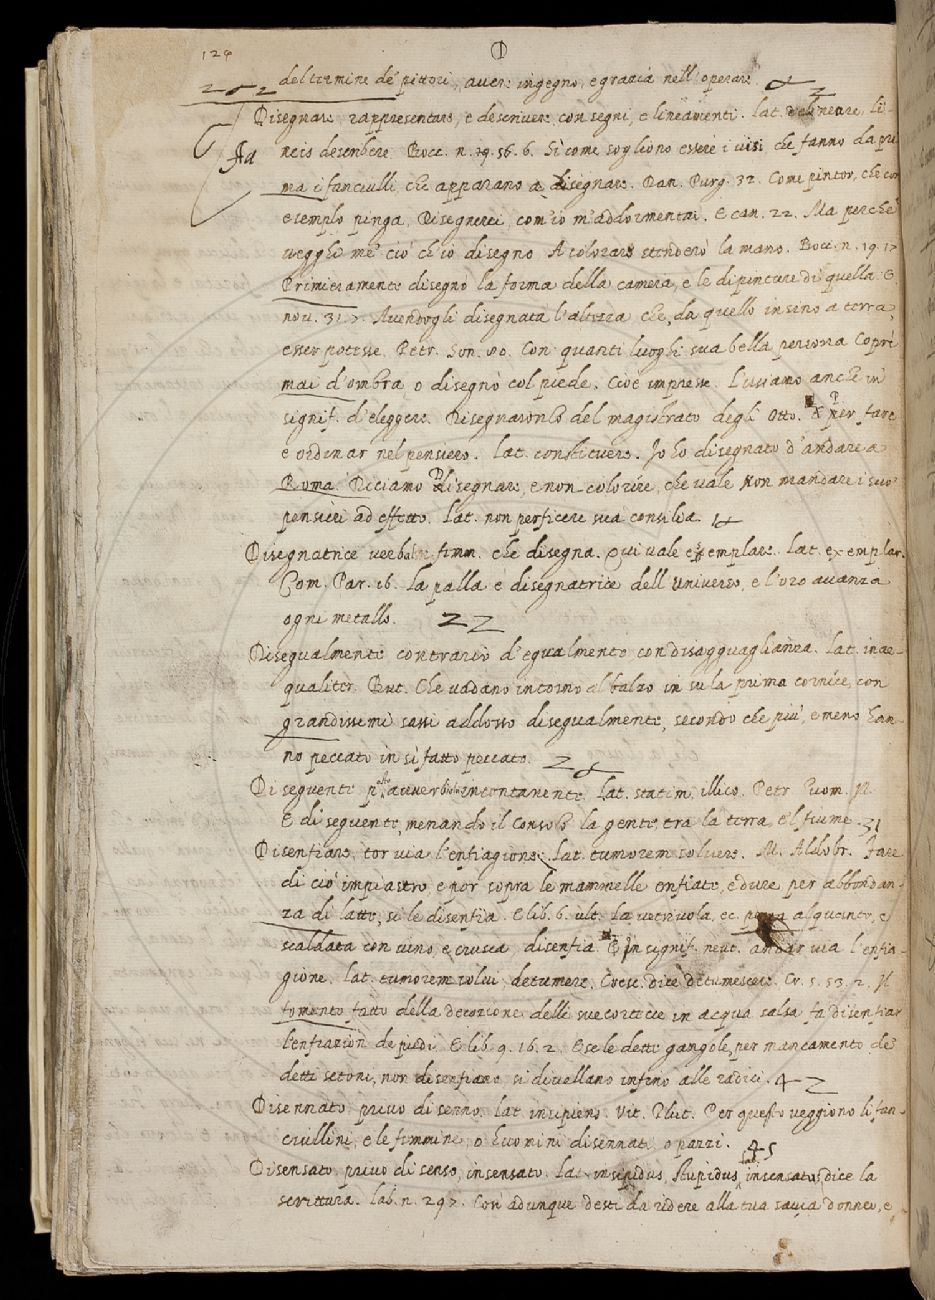 124
del termine de' pittori, aver ingegno, e grazia nell'operare.
Disegnare. rappresentare, e descrivere con segni, e lineamenti. Lat. delineare, li-
neis describere. Bocc. n. 56. 6. Sì come sogliono essere i visi che fanno da pri
ma i fanciulli che apparano a disegnare. Dan. Purg. 32. Come pintor, che con
esemplo pinga, Disegnerei, com'io m'addormentai. E can. 22. Ma perchè
vegghi me' ciò ch'io disegno A colorare stenderò la mano. Bocc. n. 19. 17
Primieramente disegno la forma della camera, e le dipinture di quella. E
nov. 31. 7. Avendogli disegnata l'altezza che, da quello insino a terra,
esser potesse. Petr. Son. 80. Con quanti luoghi sua bella persona Coprì
mai d'ombra o disegnò col piede. Cioè impresse. L'usiamo anche in
signif. d'eleggere. Disegnaronlo del magistrato degli Otto. per fare
e ordinar nel pensiero. Lat. constituere. Io ho disegnato d'andare a
Roma. Diciamo disegnare, e non colorire, che vale non mandare i suoi
pensieri ad effetto. Lat. non perficere sua consilia. 14
Disegnatrice verbal. femm. che disegna. Qui vale esemplare. Lat. exemplar.
Com. Par. 16. La palla è disegnatrice dell'universo, e l'oro avanza
ogni metallo. 22
Disegualmente contrario d'egualmente con disagguaglianza. Lat. inae-
qualiter. But. Che vadano intorno al balzo in su la prima cornice, con
grandissimi sassi addosso disegualmente, secondo che più, e meno han-
no peccato in sì fatto peccato.
Di seguente posto avverbial. incontanente. Lat. statim, illico. Petr. Huom. Il.
E di seguente, menando il Consolo la gente, tra la terra, e'l fiume. 31
Disenfiare, tor via l'enfiagione. Lat. tumorem solvere. M. Aldobr. Fare
di ciò impiastro, e por sopra le mammelle enfiate, e dure per abbondan-
za di latte, sì le disenfia. E lib. 6. ult. La vetriuola, ec. alquanto, e
scaldata con vino, e crusca disenfia. E in signif. neut. andar via l'enfia-
gione. Lat. tumorem solvi, detumere. Cresc. dice detumescere. Cr. 5. 53. 2. Il
fomento fatto della decozione delle sue cortecce in acqua salsa fa disenfiar
l'enfiazion de' piedi. E lib. 9. 16. 2. E se le dette gangole, per mancamento de'
detti setoni, non disenfiano si divellano infino alle radici. 42
Disennato, privo di senno. Lat. insipiens. Vit. Plut. Per questo veggiono li fan-
ciullini, e le femmine, o huomini disennati, o pazzi. 45
Disensato, privo di senso, insensato. Lat. insipidus, stupidus, insensatus, dice la
scrittura. Lab. n. 297. Con adunque desti da ridere alla tua savia donna, e